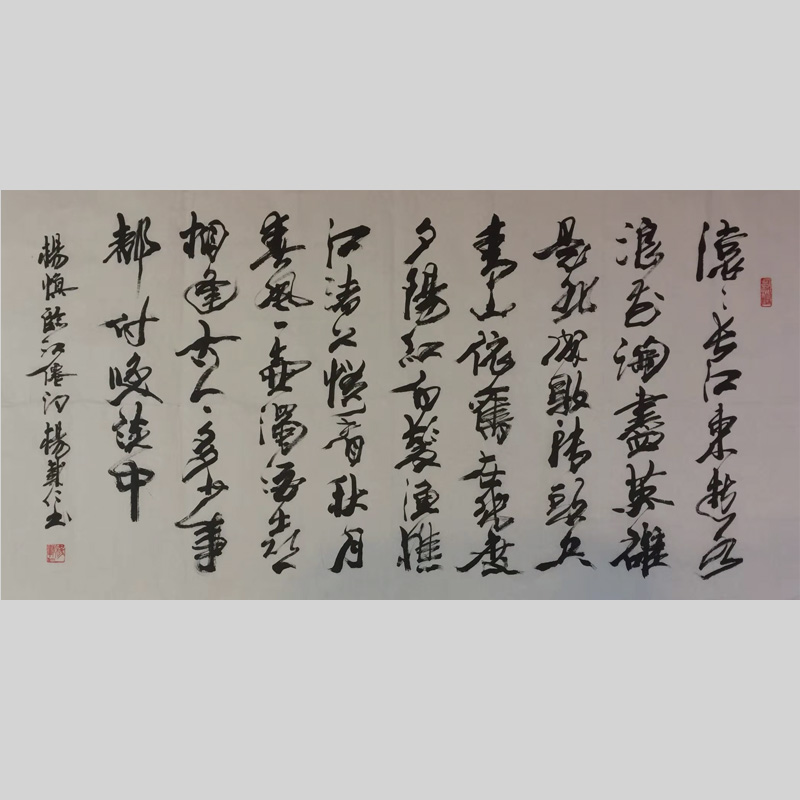 滾滾长江東逝水
浪花淘盡英雄
是非成敗转頭空
青山依舊在幾度
夕陽紅白髮漁樵
江渚上慣看秋月
春風一壺濁酒喜
相逢古今多少事
都付笑談中
楊慎臨江僊词 楊仁书